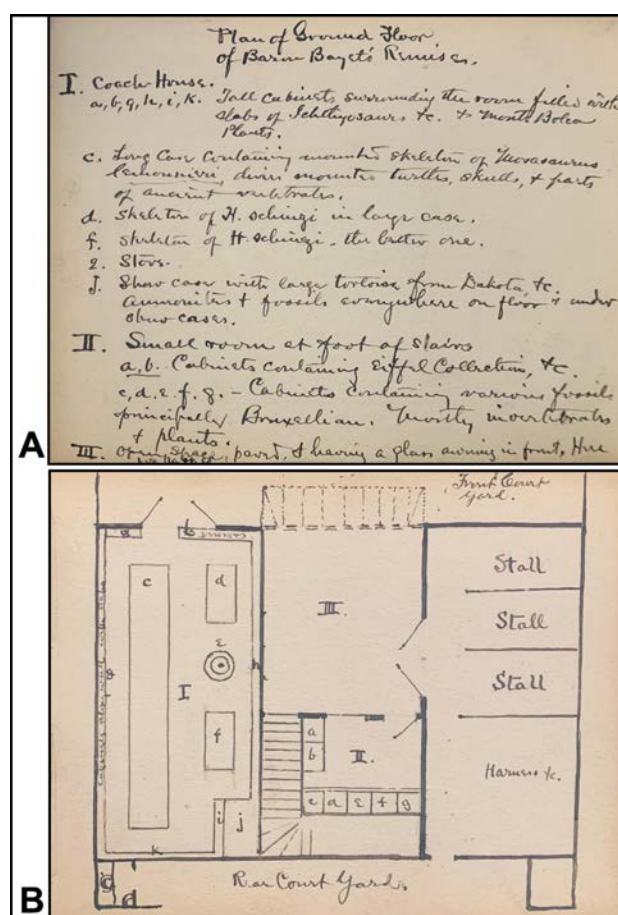 Plan of Ground Floor
of Baron Bayet's Remises.
I. Coach House.
a, b, g, h, i, k. Tall cabinets surrounding the room filled with
slabs of Ichthyosaurs &c. & Monte Bolca
Plants.
c. Long Case containing mounted skeleton of Mosasaurus
lemonnieri, divers mounted turtles, skulls, & parts
of ancient vertebrates.
d. Skeleton of H. schinzi in large case.
f. Skeleton of H. schinzi - the better one.
ε. Stove.
J. Show case with large tortoise from Dakota, &c.
Ammonites & fossils everywhere on floor & under
show cases.
II. Small room at foot of stairs
a, b. Cabinets containing Eiffel Collection, &c.
c, d, ε, f, g. - Cabinets containing various fossils
principally Bruxellian. Mostly invertebrates
& plants.
III. Open space, paved, & having a glass awning in front. Here
A
Front Court
Yard.
a
b
c
d
ε
g
h
I
f
i
j
k
III.
II.
a
b
c d ε f g
Stall
Stall
Stall
Harness &c.
Rear Court Yard.
B